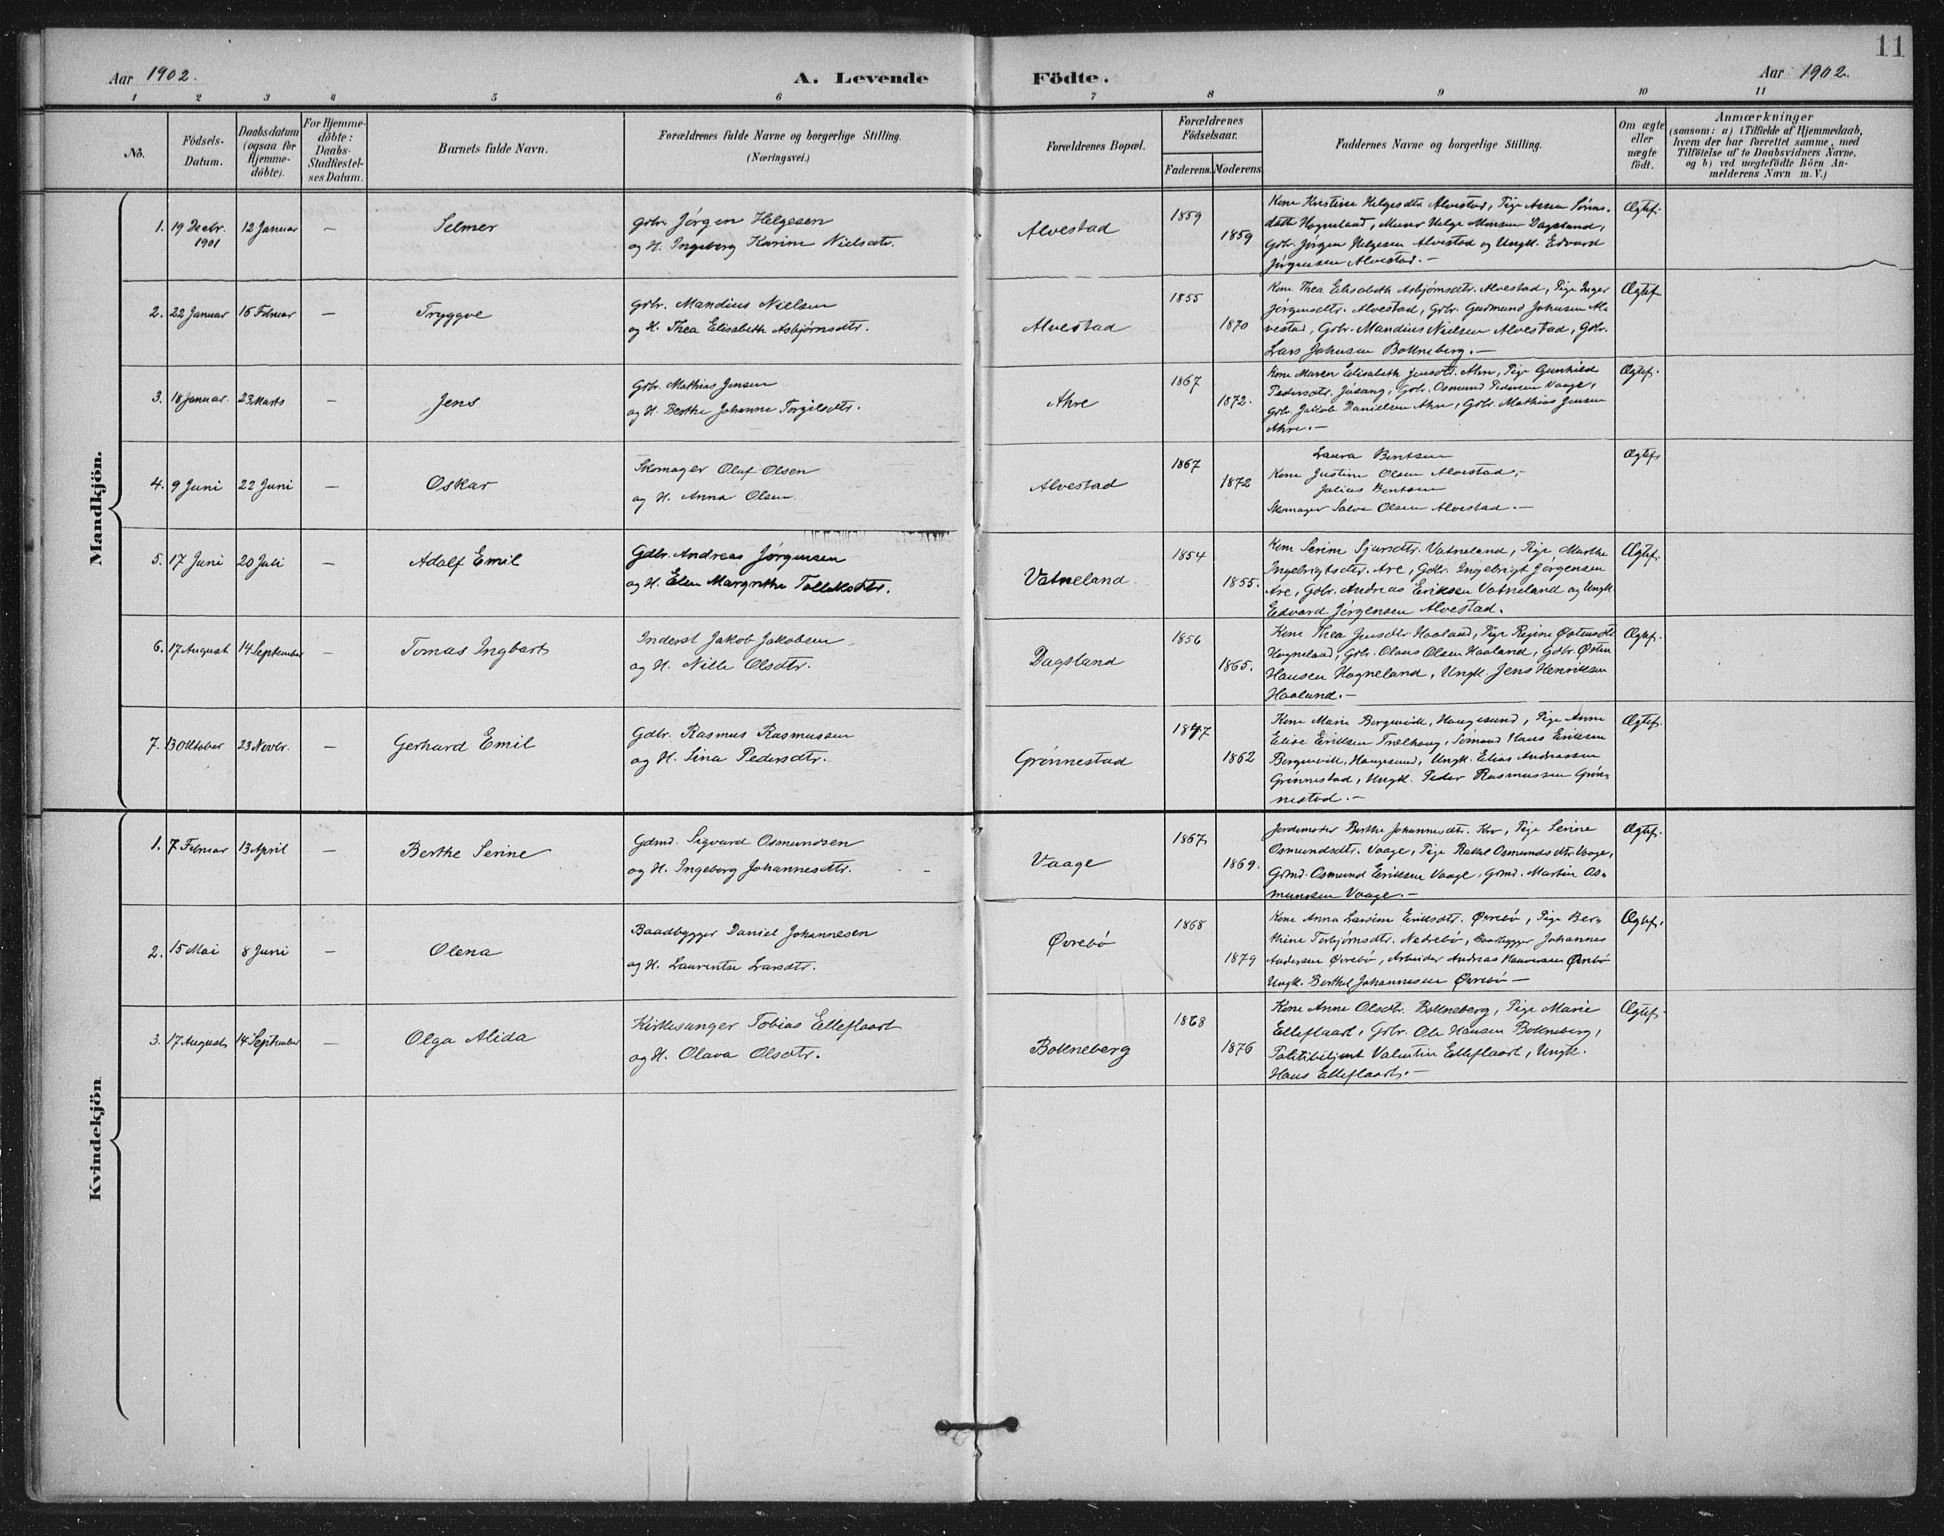 11
Aar 1902.
A. Levende
Födte.
Aar 1902.
1 2 3 4 5 6 7 8 9 10 11
Nô.
Födsels-
Datum.
Daabsdatum
(ogsaa for
Hjemme-
döbte).
For Hjemme-
döbte:
Daabs-
Stadfæstel-
ses Datum.
Barnets fulde Navn.
Forældrenes fulde Navne og borgerlige Stilling.
(Næringsvei.)
Forældrenes Bopæl.
Forældrenes
Födselsaar.
Faderens.
Moderens.
Faddernes Navne og borgerlige Stilling.
Om ægte
eller
uægte
födt.
Anmærkninger
(saasom: a) i Tilfælde af Hjemmedaab,
hvem der har forrettet samme, med
Tilföielse af to Daabsvidners Navne,
og b) ved uægtefödte Börn An-
melderens Navn m. V.)
Mandkjön.
1. 19 Decbr. 1901 12 Januar — Selmer
Gbr. Jørgen Helgesen
og H. Ingeborg Karine Nielsdtr.
Alvestad 1859 1859
Kone Kristine Helgesdtr. Alvestad, Pige Anna Søren-
datter Hogneland, Murer Helge Monsen Dagsland,
Gbr. Jørgen Helgesen Alvestad og Ungk. Edvard
Jørgensen Alvestad. —
Ægtef.
2. 22 Januar 16 Februar — Tryggve
Gbr. Mandius Nielsen
og H. Thea Elisabeth Asbjørnsdtr.
Alvestad 1855 1870
Kone Thea Elisabeth Asbjørnsdtr. Alvestad, Pige Inger
Jørgensdtr. Alvestad, Gbr. Gudmund Johnsen Al-
vestad, Gbr. Mandius Nielsen Alvestad, Gbr.
Lars Johnsen Bokneberg. —
Ægtef.
3. 18 Januar 23 Marts — Jens
Gbr. Mathias Jensen
og H. Berthe Johanne Torgilsdtr.
Ahre 1867 1872.
Kone Maren Elisabeth Jensdtr. Ahre, Pige Gunhild
Pedersdtr. Jøsang, Gbr. Osmund Pedersen Vaage,
Gbr. Jakob Danielsen Ahre, Gbr. Mathias Jensen
Ahre. —
Ægtef.
4. 9 Juni 22 Juni — Oskar
Skomager Oluf Olsen
og H. Anna Olsen.
Alvestad 1867 1872
Laura Bentsen
Kone Justine Olsen Alvestad,
Julius Bentsen
Skomager Salve Olsen Alvestad. —
Ægtef.
5. 17 Juni 20 Juli — Adolf Emil
Gdbr. Andreas Jørgensen
og H. Elen Margrethe Tollaksdtr.
Vatneland 1854 1855.
Kone Serine Sjursdtr. Vatneland, Pige Marthe
Ingebrigtsdtr. Are, Gdbr. Ingebrigt Jørgensen
Are, Gdbr. Andreas Eriksen Vatneland og Ungk.
Edvard Jørgensen Alvestad.
Ægtef.
6. 17 August 14 September — Tomas Ingbart
Inderst Jakob Jakobsen
og H. Nille Olsdtr.
Dagsland 1856 1865.
Kone Thea Jensdtr. Haaland, Pige Regine Østensdtr.
Hogneland, Gbr. Olaus Olsen Haaland, Gdbr. Østen
Hansen Hogneland, Ungk. Jens Henriksen
Haaland. —
Ægtef.
7. 13 Oktober 23 Novbr. — Gerhard Emil
Gdbr. Rasmus Rasmussen
og H. Sina Pedersdtr.
Grønnestad 1847 1862
Kone Marie Bergevik, Haugesund, Pige Anne
Elise Eriksen Trælhaug, Sømand Hans Eriksen
Bergevik, Haugesund, Ungk. Elias Andreassen
Grønnestad, Ungk. Peder Rasmussen Grøn-
nestad. —
Ægtef.
Kvindekjön.
1. 7 Februar 13 April — Berthe Serine
Gdmd. Sigvard Osmundsen
og H. Ingeborg Johannesdtr.
Vaage 1867 1869.
Jordemoder Berthe Johannesdtr. Kro, Pige Serine
Osmundsdtr. Vaage, Pige Rakel Osmundsdtr. Vaage,
Grmd. Osmund Eriksen Vaage, Grmd. Martin Os-
mundsen Vaage. —
Ægtef.
2. 15 Mai 8 Juni — Olena
Baadbygger Daniel Johannesen
og H. Laurentse Larsdtr.
Øvrebø 1868 1879
Kone Anna Larsine Eriksdtr. Øvrebø, Pige Ber-
thine Torbjørnsdtr. Nedrebø, Baadbygger Johannes
Andersen Øvrebø, Arbeider Andreas Halvorsen Øvrebø
Ungk. Berthel Johannesen Øvrebø —
Ægtef.
3. 17 August 14 September — Olga Alida
Kirkesanger Tobias Elleflaart
og H. Olava Olsdtr.
Bokneberg 1868 1876
Kone Anne Olsdtr. Bokneberg, Pige Marie
Elleflaart, Gdbr. Ole Hansen Bokneberg,
Politibetjent Valentin Elleflaart, Ungk.
Hans Elleflaart. —
Ægtef.